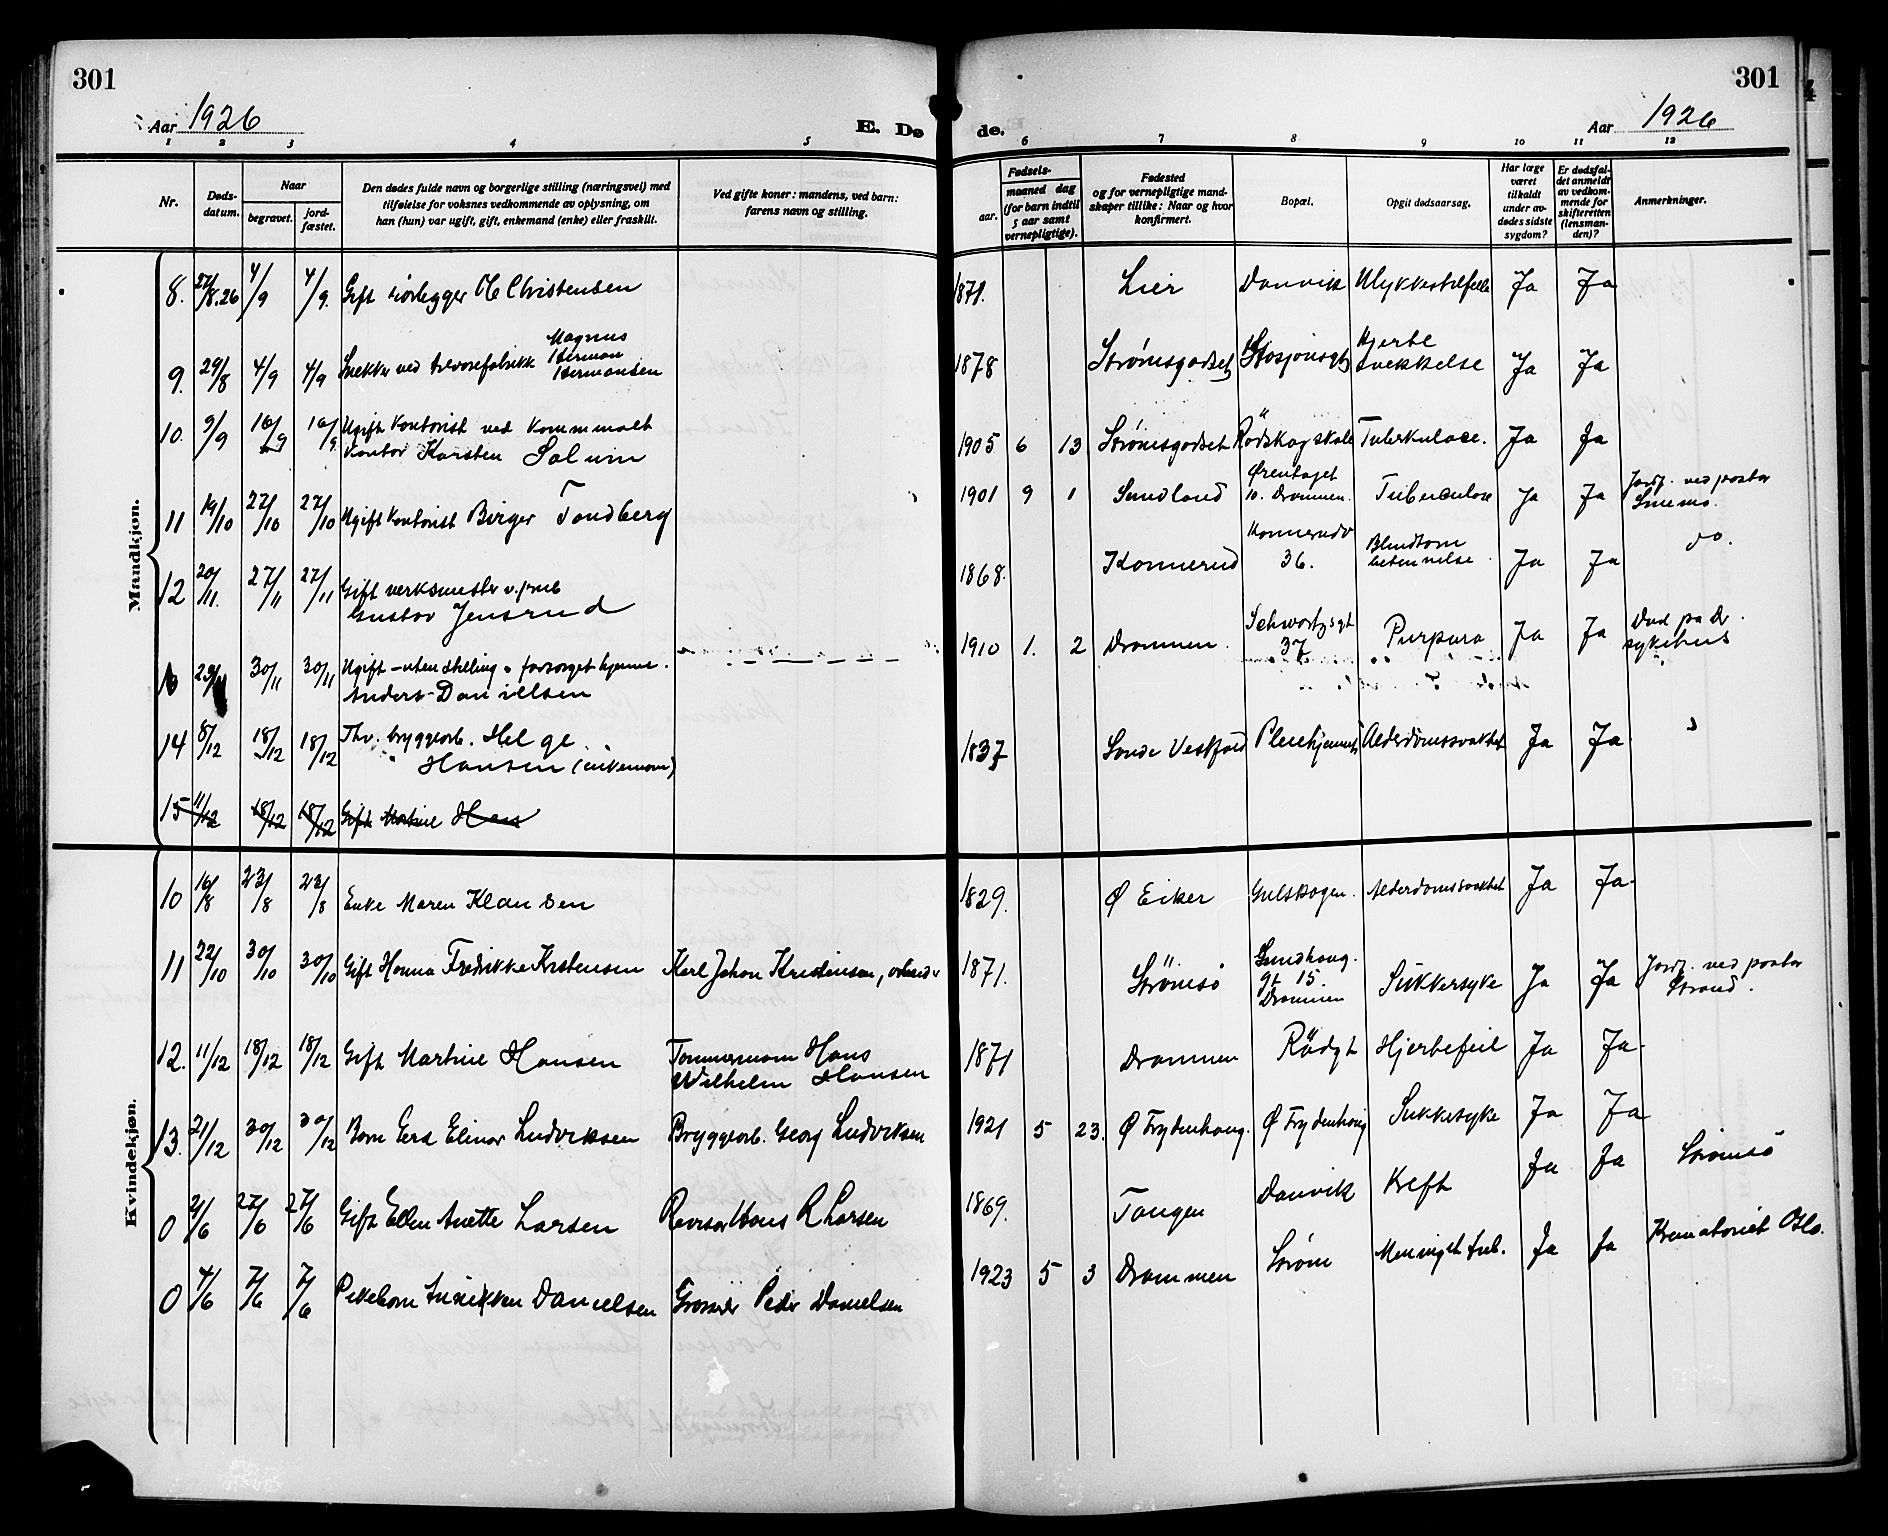 301
301
Aar 1926
E. Dø
de.
Aar 1926
1 2 3 4 5 6 7 8 9 10 11 12
Nr.
Døds-
datum.
Naar
begravet.
jord-
fæstet.
Den dødes fulde navn og borgerlige stilling (næringsvei) med
tilføielse for voksnes vedkommende av oplysning, om
han (hun) var ugift, gift, enkemand (enke) eller fraskilt.
Ved gifte koner: mandens, ved barn:
farens navn og stilling.
Fødsels-
aar.
maaned dag
(for barn indtil
5 aar samt
vernepligtige).
Fødested
og for vernepligtige mand-
skaper tillike: Naar og hvor
konfirmert.
Bopæl.
Opgit dødsaarsag.
Har læge
været
tilkaldt
under av-
dødes sidste
sygdom?
Er dødsfal-
det anmeldt
av vedkom-
mende for
skifteretten
(lensman-
den)?
Anmerkninger.
Mandkjøn.
8. 27/8.26 4/9 4/9. Gift rørlegger Ole Christensen 1871. Lier Danvik Ulykkestilfelle Ja Ja
9. 29/8 4/9 4/9 Snekker ved trevarefabrikk Magnus
Herman
Hermansen 1878 Strømsgodset Stasjonsgt Hjerte
svekkelse Ja Ja
10. 9/9 16/9 16/9 Ugift kontorist ved kommunalt
kontor Karsten Solum 1905 6 13 Strømsgodset Rødskog skole Tuberkulose. Ja Ja
11 19/10 27/10 27/10 Ugift kontorist Birger Tandberg 1901 9 1 Sundland Ørentoget
10. Drammen. Tuberculose Ja Ja Jordf. ved pastor
12 20/11. 27/11 27/11 Gift verksmester
Gustav Jensrud 1868. Konnerud Konnerudv
36. Blindtarm
betennelse. Ja Ja do.
23/11 30/11 30/11 Ugift - uten stilling - forsørget hjemme.
Anders Danielsen 1910 1. 2 Drammen Schwartzsgt
37 Purpura Ja Ja Død på Dr.
sykehus
14 8/12 18/12 18/12 Fhv. bryggearb. Helge
Hansen (enkemann) 1837 Sande Vestfold Pleiehjemmet Alderdomssvakhet Ja Ja
15 11/12 18/12 18/12 Gift Martine Hans
Kvindekjøn.
10 16/8 23/8 23/8 Enke Maren Klausen 1829. Ø Eiker Gulskogen. Alderdomssvakhet Ja Ja
11 22/10 30/10 30/10 Gift Hanna Fredrikke Kristensen Karl Johan Kristensen, arbeider 1871. Strømsø Sundhaug.
gt 15.
Drammen Sukkersyke Ja Ja Jordf. ved pastor
Strand.
12. 11/12 18/12 18/12 Gift Martine Hansen Tømmermann Hans
Wilhelm Hansen 1871 Drammen Rødgt Hjertefeil Ja Ja
13. 21/12 30/12 30/12 Barn Gerd Elinor Ludviksen Bryggearb. Georg Ludviksen 1921 5 23. Ø Frydenhaug. Ø Frydenhaug Sukkesyke Ja Ja
0 2/6 27/6 27/6 Gift Ellen Anette Larsen Revisor Hans R Larsen 1869. Tangen Danvik Kreft Ja Ja Strømsö
0 4/6 7/6 7/6 Pikebarn Danielsen Grosserer Peder Danielsen 1923 5 3 Drammen Strøm Meninget tub. Ja Ja Krematoriet Oslo.